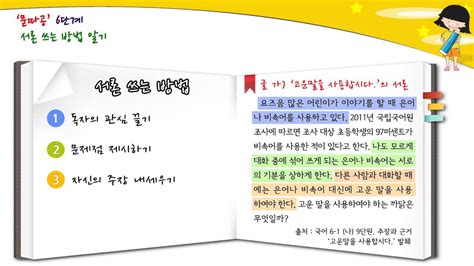 '문따공' 6단계
서론 쓰는 방법 알기
서론 쓰는 방법
1 독자의 관심 끌기
2 문제점 제시하기
3 자신의 주장 내세우기
글 가) '고운말을 사용합시다.'의 서론
요즈음 많은 어린이가 이야기를 할 때 은어
나 비속어를 사용하고 있다. 2011년 국립국어원
조사에 따르면 조사 대상 초등학생의 97퍼센트가
비속어를 사용한 적이 있다고 한다. 나도 모르게
대화 중에 섞어 쓰게 되는 은어나 비속어는 서로
의 기분을 상하게 한다. 다른 사람과 대화할 때
에는 은어나 비속어 대신에 고운 말을 사용
하여야 한다. 고운 말을 사용하여야 하는 까닭은
무엇일까?
출처 : 국어 6-1 (나) 9단원, 주장과 근거
'고운말을 사용합시다.' 발췌